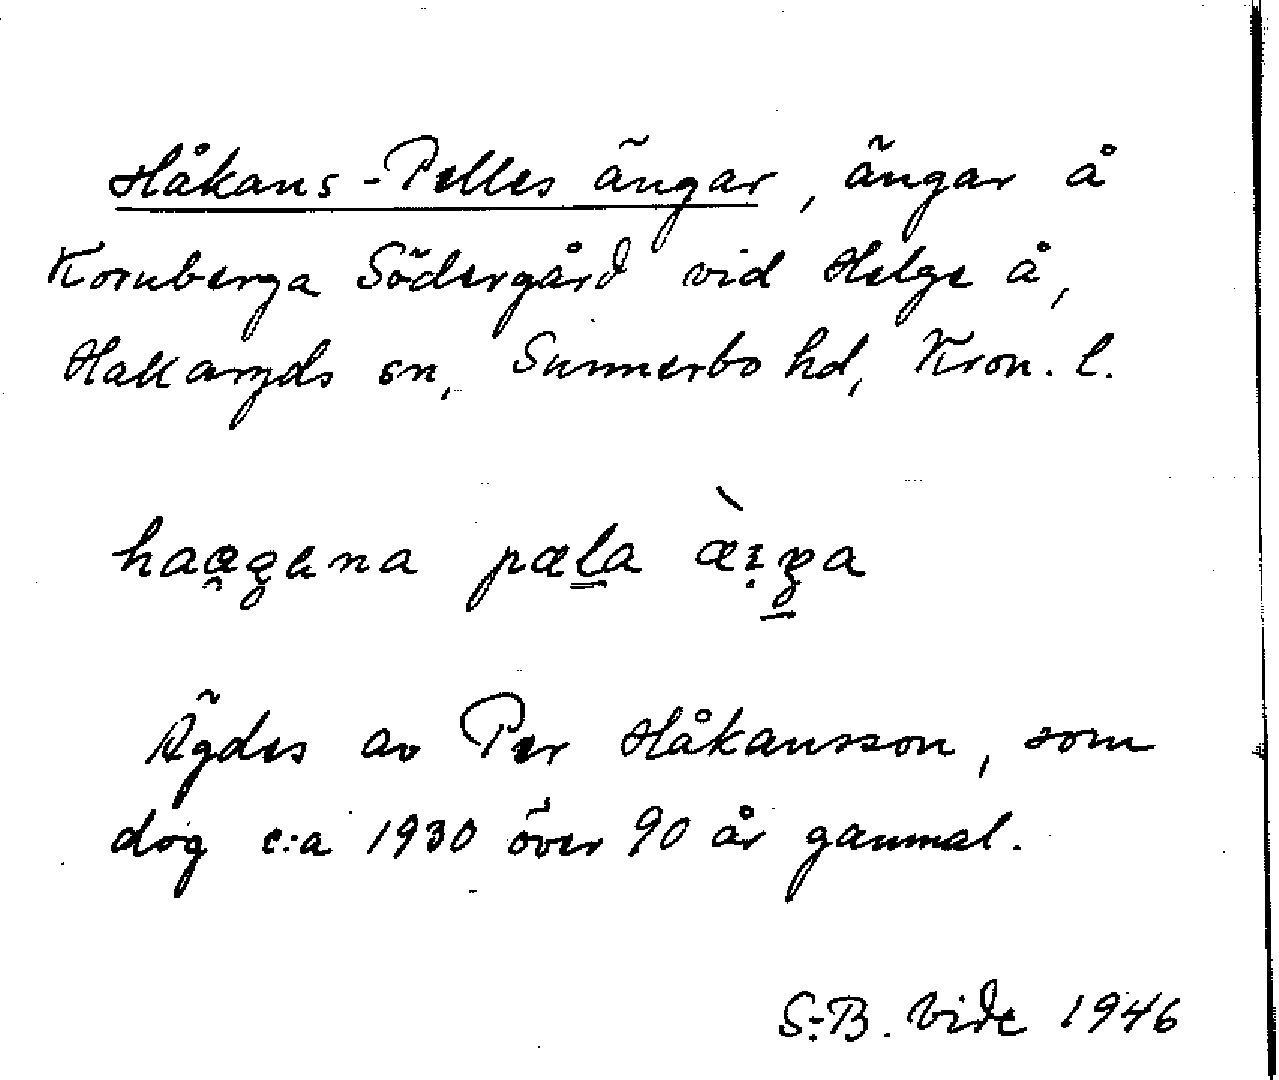 Håkans-Pelles ängar, ängar å
Kornberga Södergård vid Helge å,
Hakaryds sn, Sunnerbo hd, Kron. l.
Ägdes av Per Håkansson, som
dog c:a 1930 över 90 år gammal.
S-B. Vide 1946